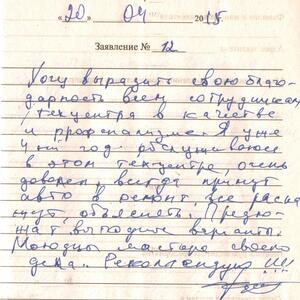 «20» 04 2015.
Заявление № 12
Хочу выразить свою благо-
дарность всем сотрудникам
техцентра в качестве
и професионализме. Я уже
4й год обслуживаюсь
в этом техцентре, очень
доволен, всегда примут
авто в ремонт, все расска-
жут, объяснят. Предло-
жат выгодные варианты.
Молодцы мастера своего
дела. Рекомендую!!!